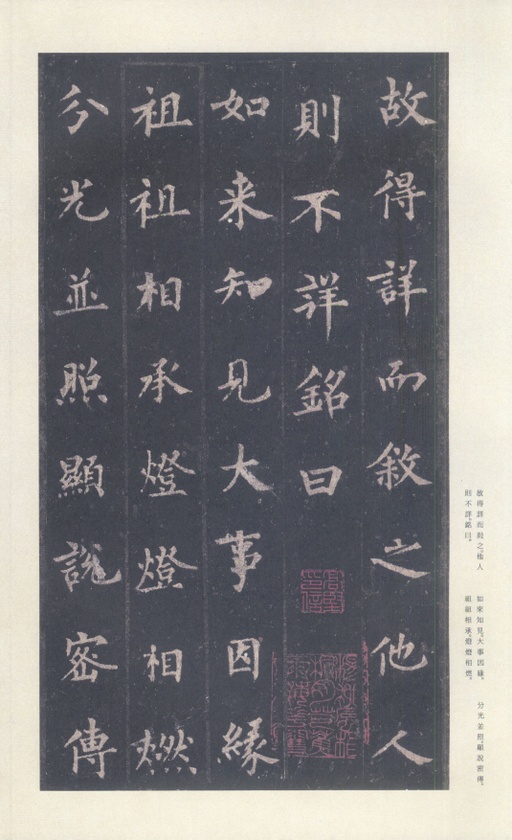 故得詳而敘之他人
則不詳銘曰
如来知見大事因緣
祖祖相承燈燈相燃
分光並照顯說密傳
故得詳而敘之。他人
則不詳。銘曰。
如來知見。大事因緣。
祖祖相承。燈燈相燃。
分光並照。顯說密傳。